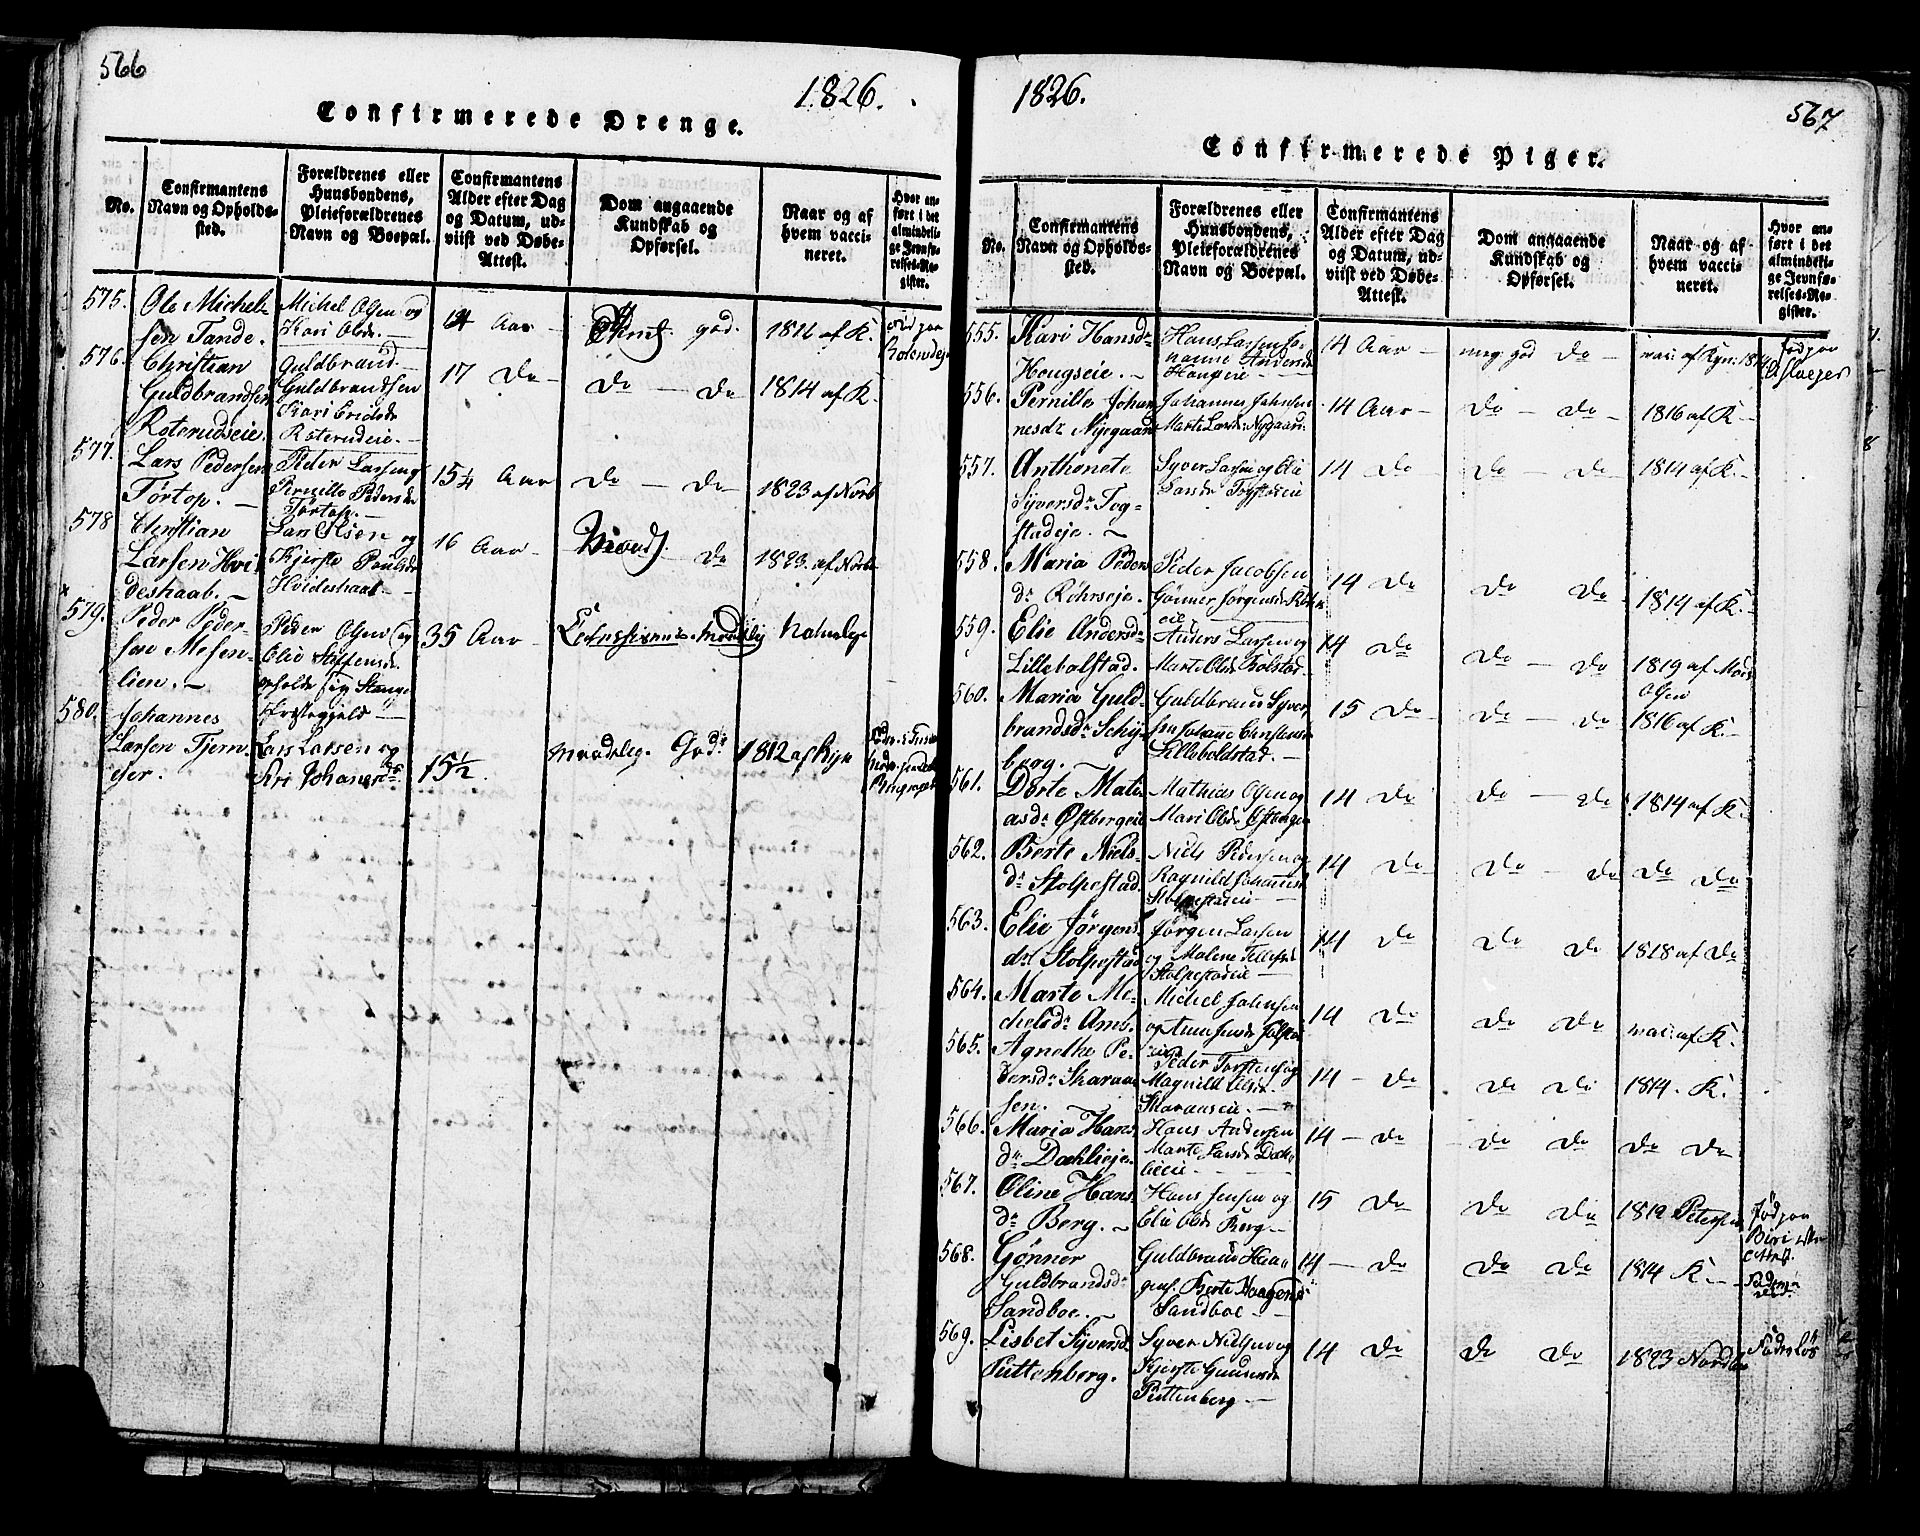 566
1826.
Confirmerede Drenge.
No.
Confirmantens Navn og Opholdssted.
Forældrenes eller Huusbondens, Pleieforældrenes Navn og Boepæl.
Confirmantens Alder efter Dag og Datum, udviist ved Døbe-Attest.
Dom angaaende Kundskab og Opførsel.
Naar og af hvem vaccineret.
Hvor anført i det almindelige Jevnførelses-Register.
575.
Ole Michel-
sen Tande.
Michel Olsen og
Kari Olsdr
14 Aar
god.
1812 af K.
576.
Christian
Guldbrandsen
Roterudseie.
Guldbrand
Guldbrandsen
Kari Ericksdr
Roterudeie.
17 Do
Do Do
1814 af K.
577.
Lars Pedersen
Tørtop.
Peder Larsen og
Pernille Pedersdr
Tørtop.
15¼ Aar
Do Do
1823 af Norb
578
Christian
Larsen Hvi-
deshaab.
Lars Olsen og
Kjersto Poulsdr
Hvideshaab
16 Aar
Do
1823 af Norb
579.
Peder Peder-
sen Mesen-
lien.
Peder Olsen og
Elie Steffensdr
opholde sig Stange
Præstegjeld
35 Aar
580.
Johannes
Larsen Tjern-
Lars Larsen og
15½.
maadelig. God
1812 af Ryn
1826.
567
Confirmerede Piger.
No.
Confirmantens Navn og Opholdssted.
Forældrenes eller Huusbondens, Pleieforældrenes Navn og Boepæl.
Confirmantens Alder efter Dag og Datum, udviist ved Døbe-Attest.
Dom angaaende Kundskab og Opførsel.
Naar og af hvem vaccineret.
Hvor anført i det almindelige Jevnførelses-Register.
555.
Kari Hansdr
Hougseie.
Hans Larsen
Andersdr
14 Aar
meg god Do
556.
Pernille Johan
nesdr Nygaard
Johannes Johnsen
Marte Larsdr Nygaard
14 Aar
Do Do
1816 af K
557.
Anthonete
Syversdr Tog-
stadeje.
Syver Larsen og Elie
Larsdr Togstadeie
14 Do
Do Do
1814 af K.
558.
Maria Peders
dr Røhrseje.
Peder Jacobsen
Gønner Jørgensdr
eie
14 Do
Do Do
1814 af K.
559.
Elie Andersdr
Lillebalstad.
Anders Larsen og
Marte Olsdr
14 Do
Do Do
1819 af Mons
Olsen
560.
Maria Guld-
brandsdr Schy-
berg.
Guldbrand Syver
Lilleboldstad.
15 Do
Do Do
1816 af K.
561.
Dorte Mati-
asdr Østbergeie
Mathias Olsen og
Mari Olsdr Østbergeie
14 Do
Do Do
1814 af K.
562.
Berte Niels-
dr Stolpestad.
Niels Pedersen og
Ragnild Johannesd
Stolpestadeie
14 Do
Do Do
Do Do
563.
Elie Jørgens
dr Stolpestad
Jørgen Larsen
og Malene Tellefsdr
Stolpestadeie
14 Do
Do Do
1818 af Do
564.
Marte Mi-
chelsdr Amb.
Michel Johnsen
14 Do
Do Do
565.
Agnethe Pe-
dersdr Skaraa-
sen.
Peder Torstensen og
Magnild Olsdr
Skaraaseie.
14 Do
Do Do
1814. K.
566.
Maria Hans
dr Dæhlieje.
Hans Andersen
Marte Larsdr Dæh-
lieeie
14 Do
Do Do
Do Do
567.
Oline Hans
dr Berg.
Hans Jensen og
Elie Olsdr Berg
15 Do
Do Do
1812 Petersen
Fød paa
Biri
568.
Gønner
Guldbrandsdr
Sandboe.
Guldbrand Haa
gens. Berte Haagensd
Sandboe
14 Do
Do Do
1814 K.
569.
Lisbet Syversd
Puttenberg.
Syver Nielsen og
Kjerste Gundersdr
Puttenberg
14 Do
Do Do
1823 Nordb
Faderløs